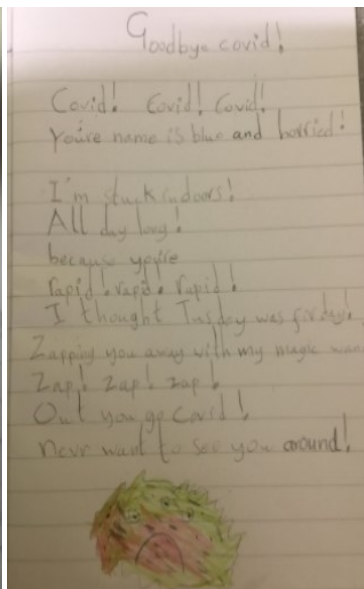 Goodbye covid!
Covid! Covid! Covid!
You're name is blue and horried!
I'm stuck indoors!
All day long!
because you're
rapid! rapid! rapid!
I thought Tusday was firday!
Zapping you away with my magic wan
Zap! Zap! zap!
Out you go Covid!
nevr want to see you around!